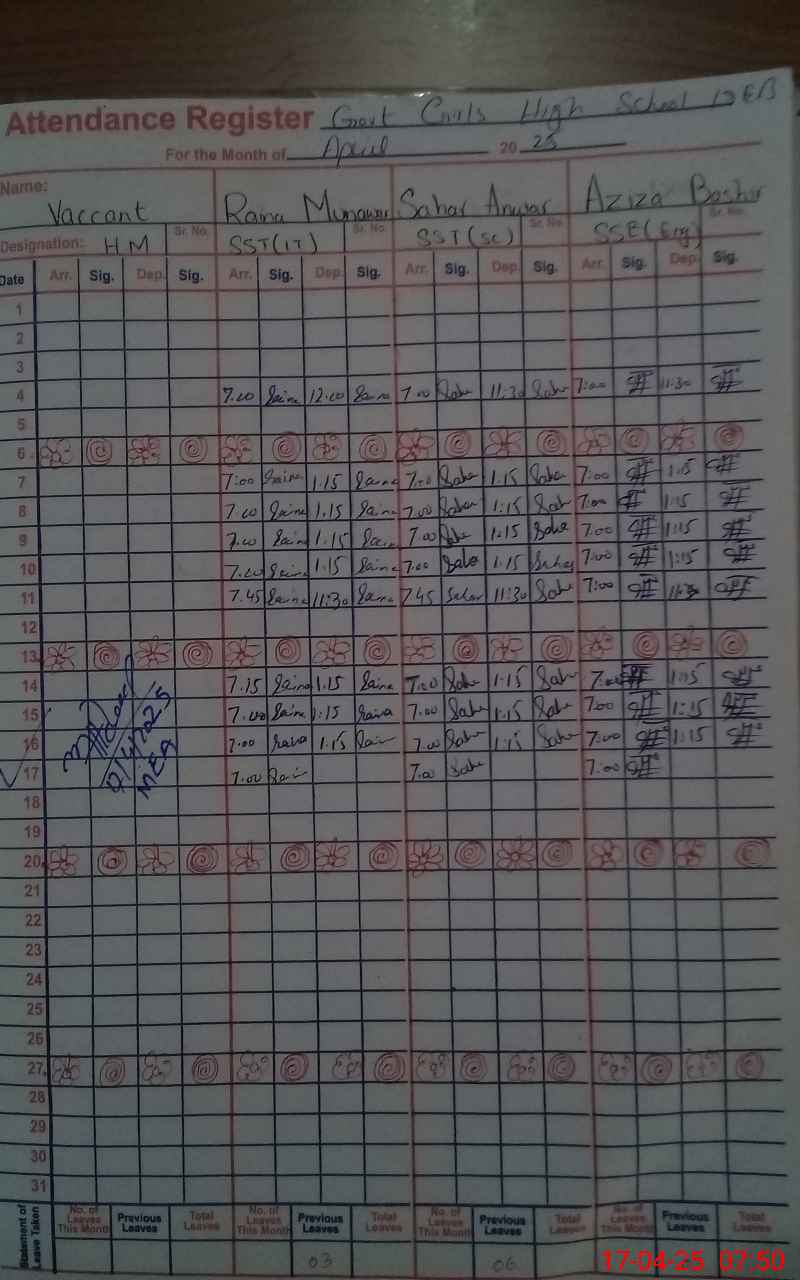 Attendance Register Govt Girls High School 13 EB
For the Month of April 2025
Name: Vaccant Raina Munawar Sahar Anwar Aziza Bashir
Designation: HM Sr. No. SST(IT) Sr. No. SST(sc) Sr. No. SSE(Eng) Sr. No.
Date Arr. Sig. Dep. Sig. Arr. Sig. Dep. Sig. Arr. Sig. Dep. Sig. Arr. Sig. Dep. Sig.
1
2
3
4 7.00 Raina 12.00 Raina 7.00 Sahar 11:30 Sahar 7:00 11:30
5
6
7 7:00 Raina 1.15 Raina 7:00 Sahar 1.15 Sahar 7:00 1:15
8 7.00 Raina 1.15 Raina 7.00 Sahar 1:15 Sahar 7:00 1:15
9 7.00 Raina 1.15 Raina 7.00 Sahar 1:15 Sahar 7.00 1:15
10 7.00 Raina 1.15 Raina 7:00 Sahar 1.15 Sahar 7:00 1:15
11 7.45 Raina 11:30 Raina 7.45 Sahar 11:30 Sahar 7:00 11:30
12
13
14 7.15 Raina 1.15 Raina 7:00 Sahar 1.15 Sahar 7:00 1:15
15 7.00 Raina 1:15 Raina 7.00 Sahar 1.15 Sahar 7:00 1:15
16 7.00 Raina 1.15 Raina 7.00 Sahar 1:15 Sahar 7:00 1:15
17 MEA 7.00 Raina 7.00 Sahar 7:00
18
19
20
21
22
23
24
25
26
27
28
29
30
31
Statement of Leave Taken No. of Leaves This Month Previous Leaves Total Leaves No. of Leaves This Month Previous Leaves Total Leaves No. of Leaves This Month Previous Leaves Total Leaves No. of Leaves This Month Previous Leaves Total Leaves
03 06
17-04-25 07:50